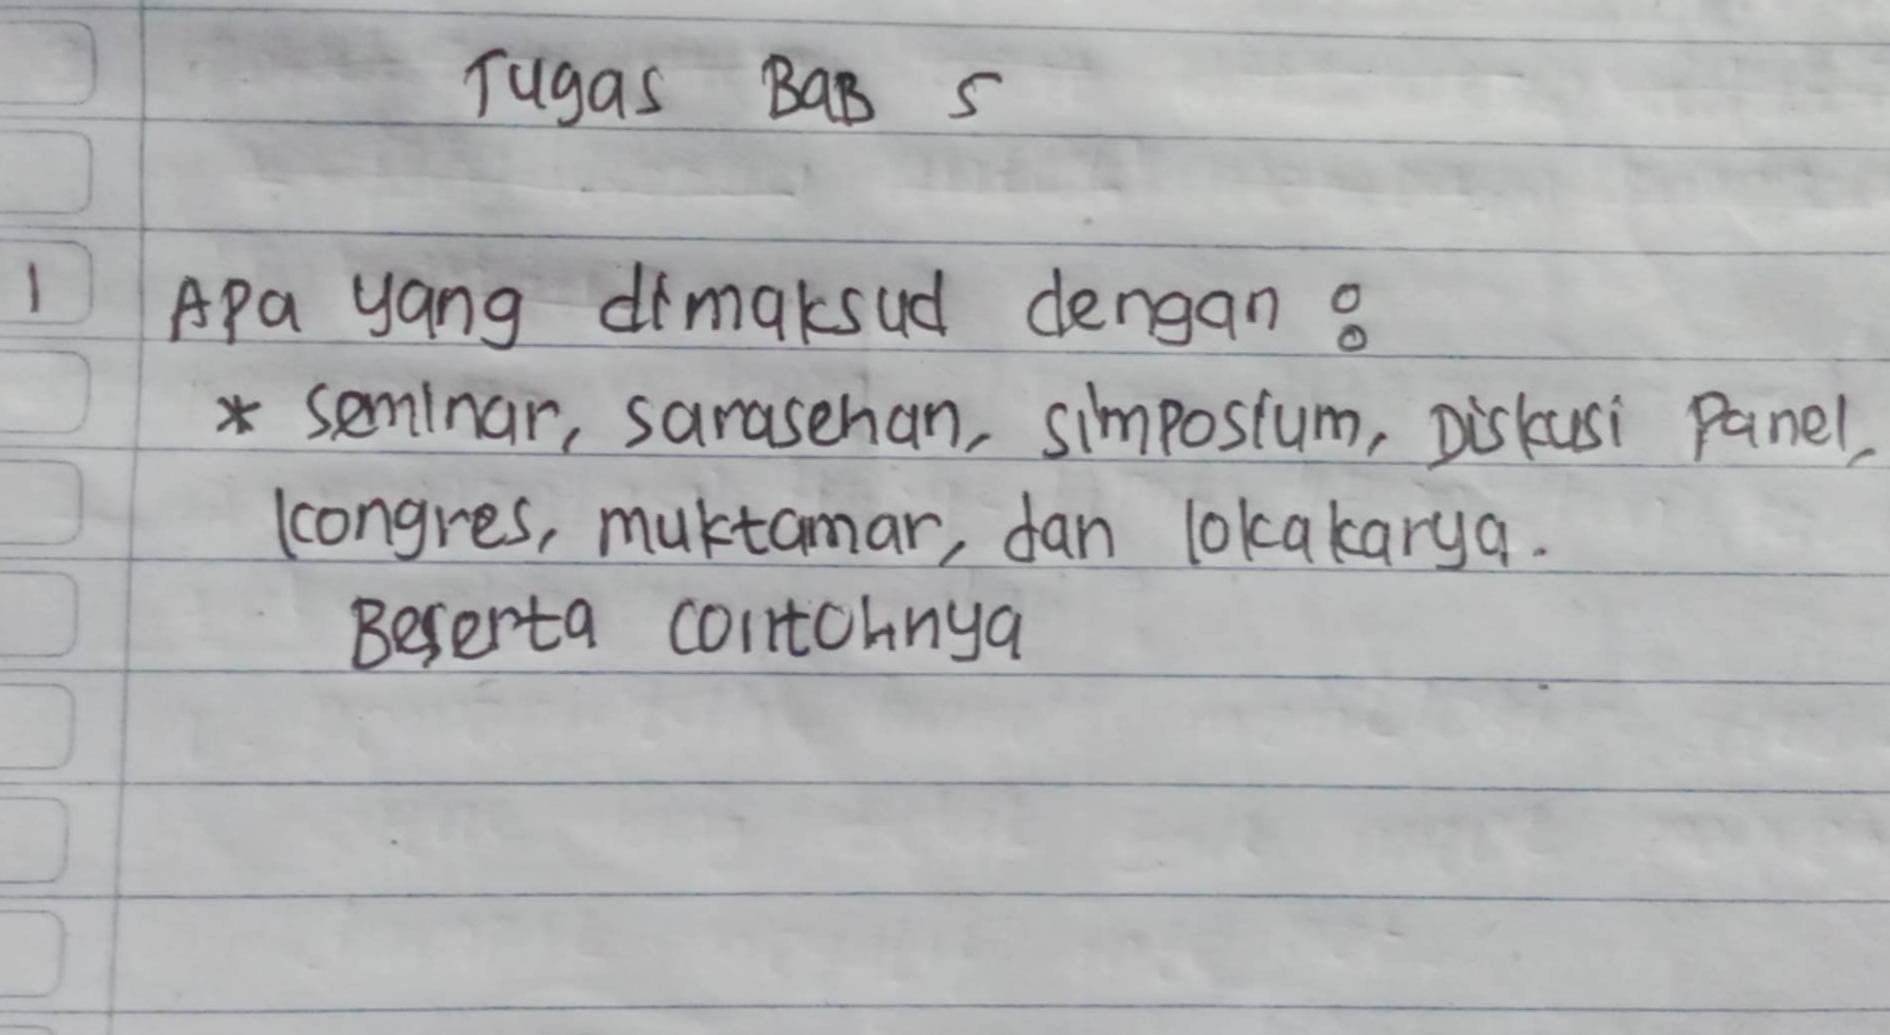 Tugas BaB 5
1 Apa yang dimaksud dengan :
* seminar, sarasehan, simposium, Diskusi Panel,
kongres, muktamar, dan lokakarya.
Beserta contohnya